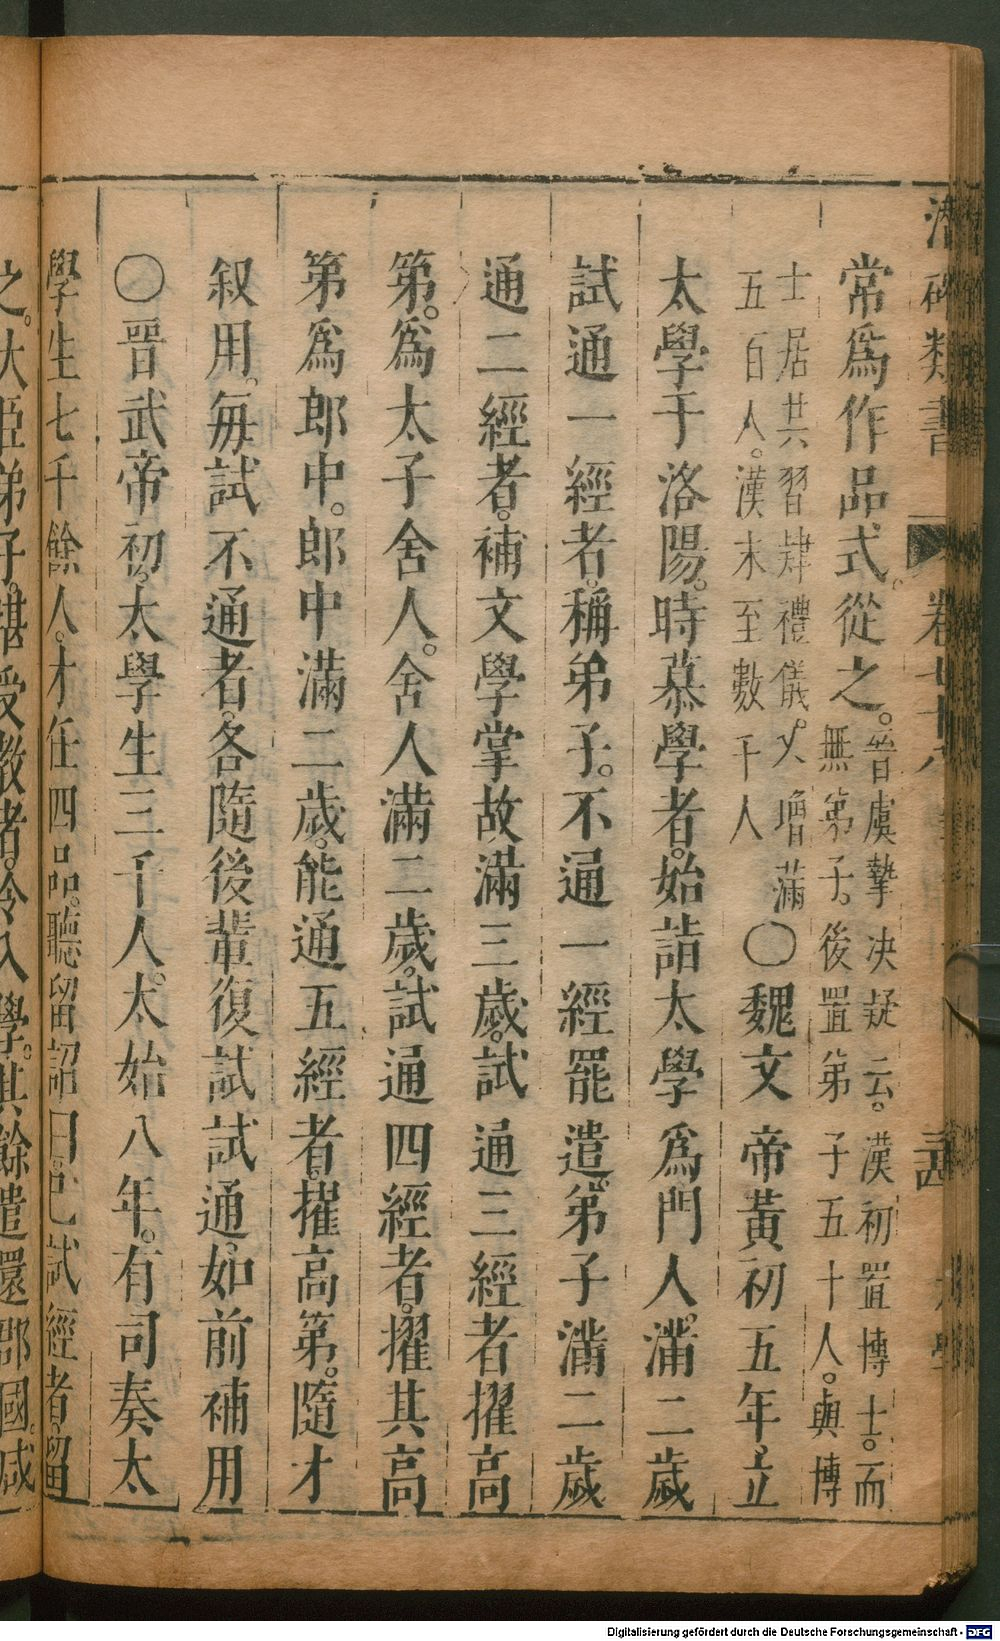 潛確類書 卷七十八 三百 大學
常爲作品式。從之。晉虞摯決疑云。漢初置博士。而
無弟子。後置弟子五十人。與博
士居共習肄禮儀。又增滿
五百人。漢末至數千人
〇魏文帝黃初五年。立
太學于洛陽。時慕學者。始詣太學爲門人。滿二歲
試通一經者。稱弟子。不通一經罷遣。弟子滿二歲
通二經者。補文學掌故滿三歲。試通三經者擢高
第。爲太子舍人。舍人滿二歲。試通四經者。擢其高
第爲郎中。郎中滿二歲。能通五經者。擢高第。隨才
叙用。每試不通者。各隨後輩復試試通。如前補用
〇晉武帝初。太學生三千人。太始八年。有司奏太
學生七千餘人。才任四品。聽留詔曰。已試經者留
之。大臣弟子。堪受敎者。令入學。其餘遣還郡國。咸
Digitalisierung gefördert durch die Deutsche Forschungsgemeinschaft - DFG